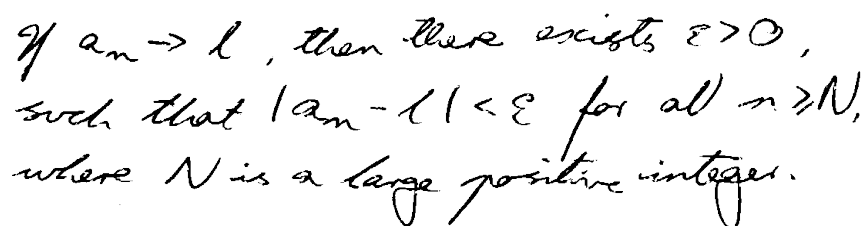 If aₙ → l, then there exists ε > 0,
such that |aₙ - l| < ε for all n ≥ N,
where N is a large positive integer.